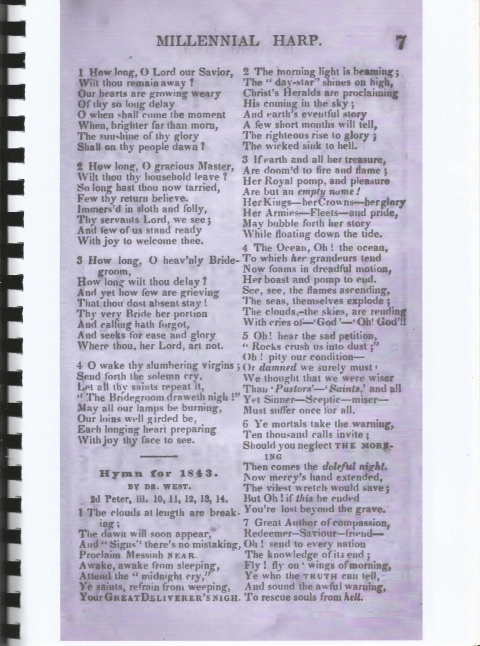 MILLENNIAL HARP. 7
1 How long, O Lord our Savior,
Wilt thou remain away ?
Our hearts are growing weary
Of thy so long delay
O when shall come the moment
When, brighter far than morn,
The sunshine of thy glory
Shall on thy people dawn ?
2 How long, O gracious Master,
Wilt thou thy household leave ?
So long hast thou now tarried,
Few thy return believe.
Immers'd in sloth and folly,
Thy servants Lord, we see ;
And few of us stand ready
With joy to welcome thee.
3 How long, O heav'nly Bride-
groom,
How long wilt thou delay ?
And yet how few are grieving
That thou dost absent stay !
Thy very Bride her portion
And calling hath forgot,
And seeks for ease and glory
Where thou, her Lord, art not.
4 O wake thy slumbering virgins ;
Send forth the solemn cry,
Let all thy saints repeat it,
"The Bridegroom draweth nigh !"
May all our lamps be burning,
Our loins well girded be,
Each longing heart preparing
With joy thy face to see.
Hymn for 1843.
BY DR. WEST.
2d Peter, iii. 10, 11, 12, 13, 14.
1 The clouds at length are break-
ing ;
The dawn will soon appear,
And "Signs" there's no mistaking,
Proclaim Messiah NEAR.
Awake, awake from sleeping,
Attend the "midnight cry,"
Ye saints, refrain from weeping,
Your GREAT DELIVERER'S NIGH.
2 The morning light is beaming ;
The "day-star" shines on high,
Christ's Heralds are proclaiming
His coming in the sky ;
And earth's eventful story
A few short months will tell,
The righteous rise to glory ;
The wicked sink to hell.
3 If earth and all her treasure,
Are doom'd to fire and flame ;
Her Royal pomp, and pleasure
Are but an empty name !
Her Kings—her Crowns—her glory
Her Armies—Fleets—and pride,
May bubble forth her story
While floating down the tide.
4 The Ocean, Oh ! the ocean,
To which her grandeurs tend
Now foams in dreadful motion,
Her boast and pomp to end.
See, see, the flames ascending,
The seas, themselves explode ;
The clouds,—the skies, are rending
With cries of—'God'—'Oh! God'!!
5 Oh! hear the sad petition,
"Rocks crush us into dust ;"
Oh! pity our condition—
Or damned we surely must !
We thought that we were wiser
Than 'Pastors'—'Saints,' and all
Yet Sinner—Sceptic—miser—
Must suffer once for all.
6 Ye mortals take the warning,
Ten thousand calls invite ;
Should you neglect THE MORN-
ING
Then comes the doleful night.
Now mercy's hand extended,
The vilest wretch would save ;
But Oh! if this be ended
You're lost beyond the grave.
7 Great Author of compassion,
Redeemer—Saviour—friend—
Oh! send to every nation
The knowledge of its end ;
Fly ! fly on' wings of morning,
Ye who the TRUTH can tell,
And sound the awful warning,
To rescue souls from hell.